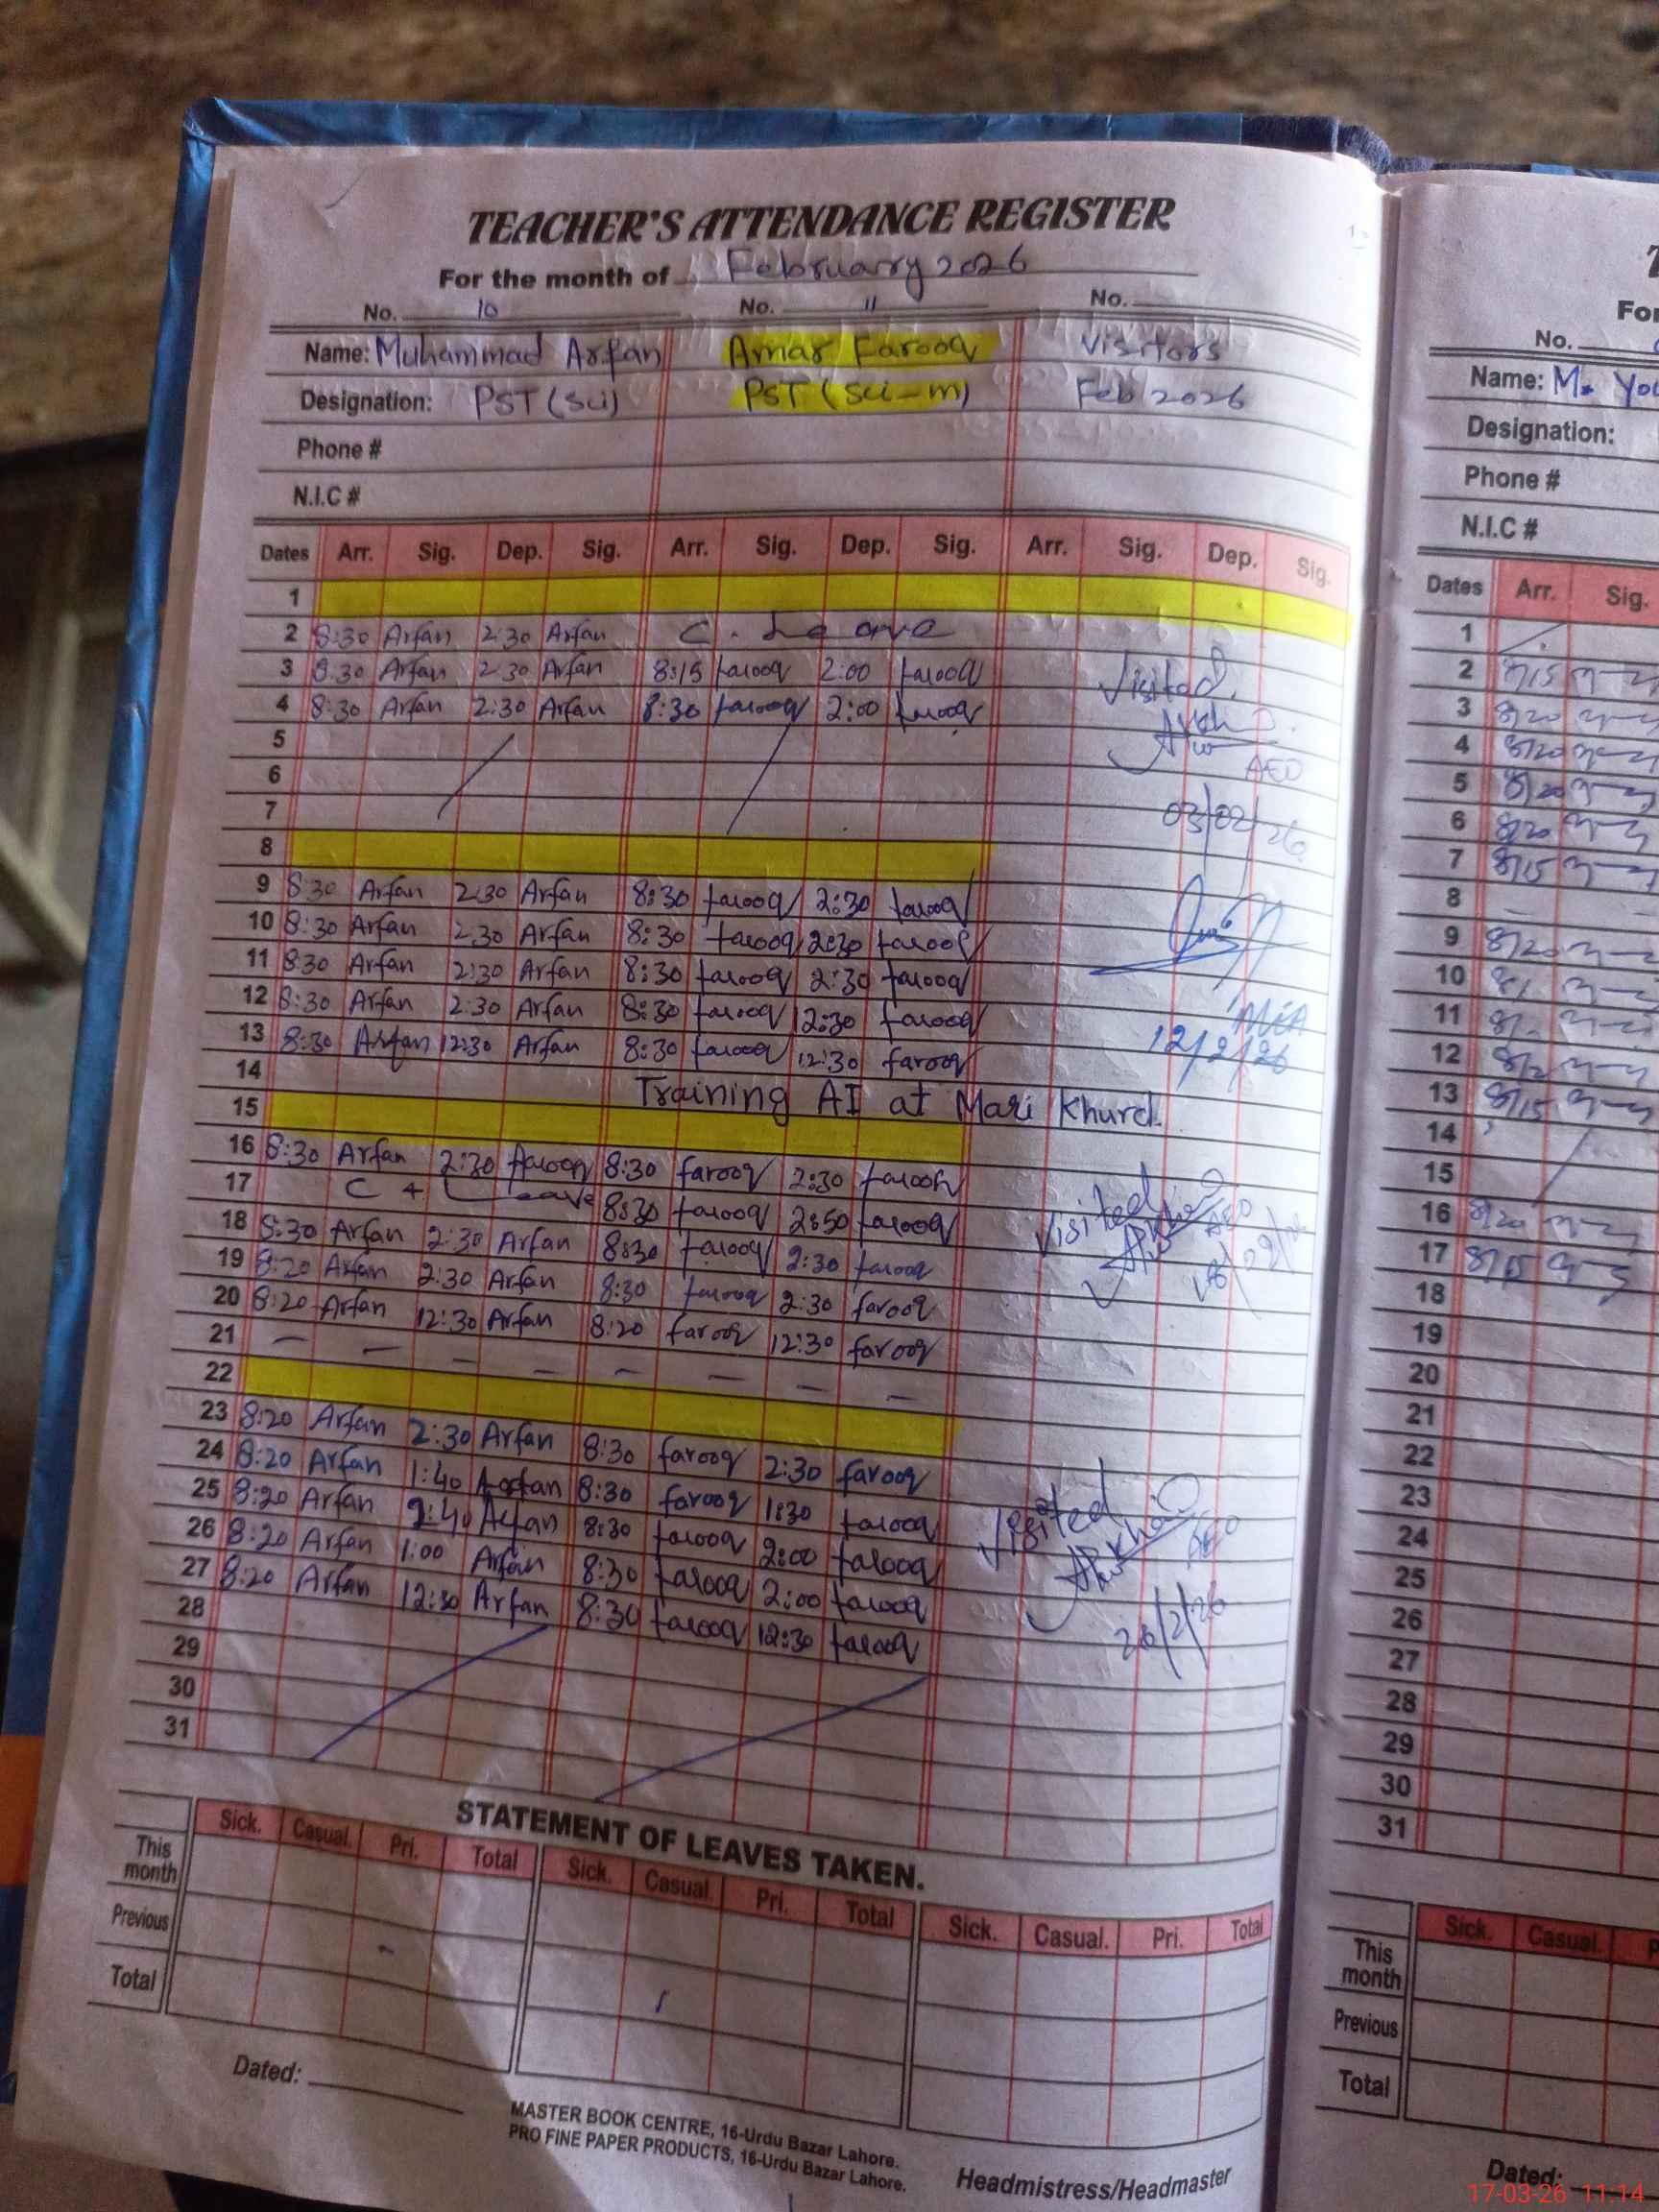 TEACHER'S ATTENDANCE REGISTER
For the month of February 2026
No. 10 No. 11 No.
Name: Muhammad Arfan Amar Farooq Visitors
Designation: PST (Sci) PST (Sci-m) Feb 2026
Phone #
N.I.C #
Dates Arr. Sig. Dep. Sig. Arr. Sig. Dep. Sig. Arr. Sig. Dep. Sig.
1
2 8:30 Arfan 2:30 Arfan C. Leave
3 8:30 Arfan 2:30 Arfan 8:15 farooq 2:00 farooq Visited
4 8:30 Arfan 2:30 Arfan 8:30 farooq 2:00 farooq
5 AEO
6
7 03/02/26
8
9 8:30 Arfan 2:30 Arfan 8:30 farooq 2:30 farooq
10 8:30 Arfan 2:30 Arfan 8:30 farooq 2:30 farooq
11 8:30 Arfan 2:30 Arfan 8:30 farooq 2:30 farooq
12 8:30 Arfan 2:30 Arfan 8:30 farooq 12:30 farooq
13 8:30 Arfan 12:30 Arfan 8:30 farooq 12:30 farooq 12/2/26
14 Training AI at Mari Khurd.
15
16 8:30 Arfan 2:30 farooq 8:30 farooq 2:30 farooq
17 C + Leave 8:30 farooq 2:50 farooq Visited
18 8:30 Arfan 2:30 Arfan 8:30 farooq 2:30 farooq AEO
19 8:20 Arfan 2:30 Arfan 8:30 farooq 2:30 farooq
20 8:20 Arfan 12:30 Arfan 8:20 farooq 12:30 farooq
21 — — — — — — — —
22
23 8:20 Arfan 2:30 Arfan 8:30 farooq 2:30 farooq
24 8:20 Arfan 1:40 Arfan 8:30 farooq 1:30 farooq Visited
25 8:20 Arfan 2:40 Arfan 8:30 farooq 2:00 farooq AEO
26 8:20 Arfan 1:00 Arfan 8:30 farooq 2:00 farooq
27 8:20 Arfan 12:30 Arfan 8:30 farooq 12:30 farooq 26/2/26
28
29
30
31
STATEMENT OF LEAVES TAKEN.
Sick. Casual. Pri. Total Sick. Casual. Pri. Total Sick. Casual. Pri. Total
This month
Previous
Total
Dated:
MASTER BOOK CENTRE, 16-Urdu Bazar Lahore.
PRO FINE PAPER PRODUCTS, 16-Urdu Bazar Lahore.
Headmistress/Headmaster
No.
Name: M.
Designation:
Phone #
N.I.C #
Dates Arr. Sig.
1
2 8/15
3 8/20
4 8/20
5 8/20
6 8/20
7 8/15
8 — —
9 8/20
10
11
12
13 8/15
14
15
16 8/20
17 8/15
18
19
20
21
22
23
24
25
26
27
28
29
30
31
Sick. Casual.
This month
Previous
Total
Dated:
17-03-26 11:14